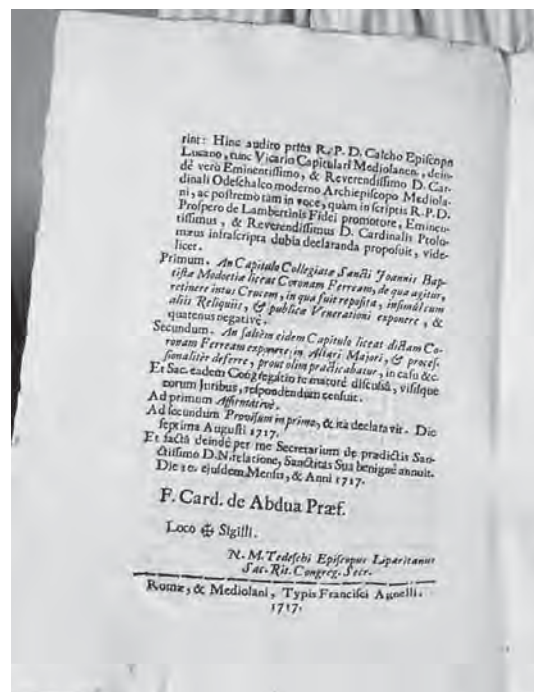 rint: Hinc audito priùs R. P. D. Calcho Episcopo
Lusano, tunc Vicario Capitulari Mediolanen., dein-
dè verò Eminentissimo, & Reverendissimo D. Car-
dinali Odeschalco moderno Archiepiscopo Mediola-
ni, ac postremò tam in voce, quàm in scriptis R. P. D.
Prospero de Lambertinis Fidei promotore, Eminen-
tissimus, & Reverendissimus D. Cardinalis Ptolo-
mæus infrascripta dubia declaranda proposuit, vide-
licet.
Primum. An Capitulo Collegiatæ Sancti Joannis Bap-
tistæ Modoetiæ liceat Coronam Ferream, de qua agitur,
retinere intus Crucem, in qua fuit reposita, insimul cum
aliis Reliquiis, & publicæ Venerationi exponere, &
quatenus negativè.
Secundum. An saltèm eidem Capitulo liceat dictam Co-
ronam Ferream exponere in Altari Majori, & proces-
sionalitèr deferre, prout olim practicabatur, in casu &c.
Et Sac. eadem Congregatio re maturè discussâ, visisque
eorum Juribus, respondendum censuit.
Ad primum Affirmativè.
Ad secundum Provisum in primo, & ità declaravit. Die
septima Augusti 1717.
Et factâ deindè per me Secretarium de prædictis San-
ctissimo D. N. relatione, Sanctitas Sua benignè annuit.
Die 10. ejusdem Mensis, & Anni 1717.
F. Card. de Abdua Præf.
Loco ✠ Sigilli.
N. M. Tedeschi Episcopus Liparitanus
Sac. Rit. Congreg. Secr.
Romæ, & Mediolani, Typis Francisci Agnelli.
1717.